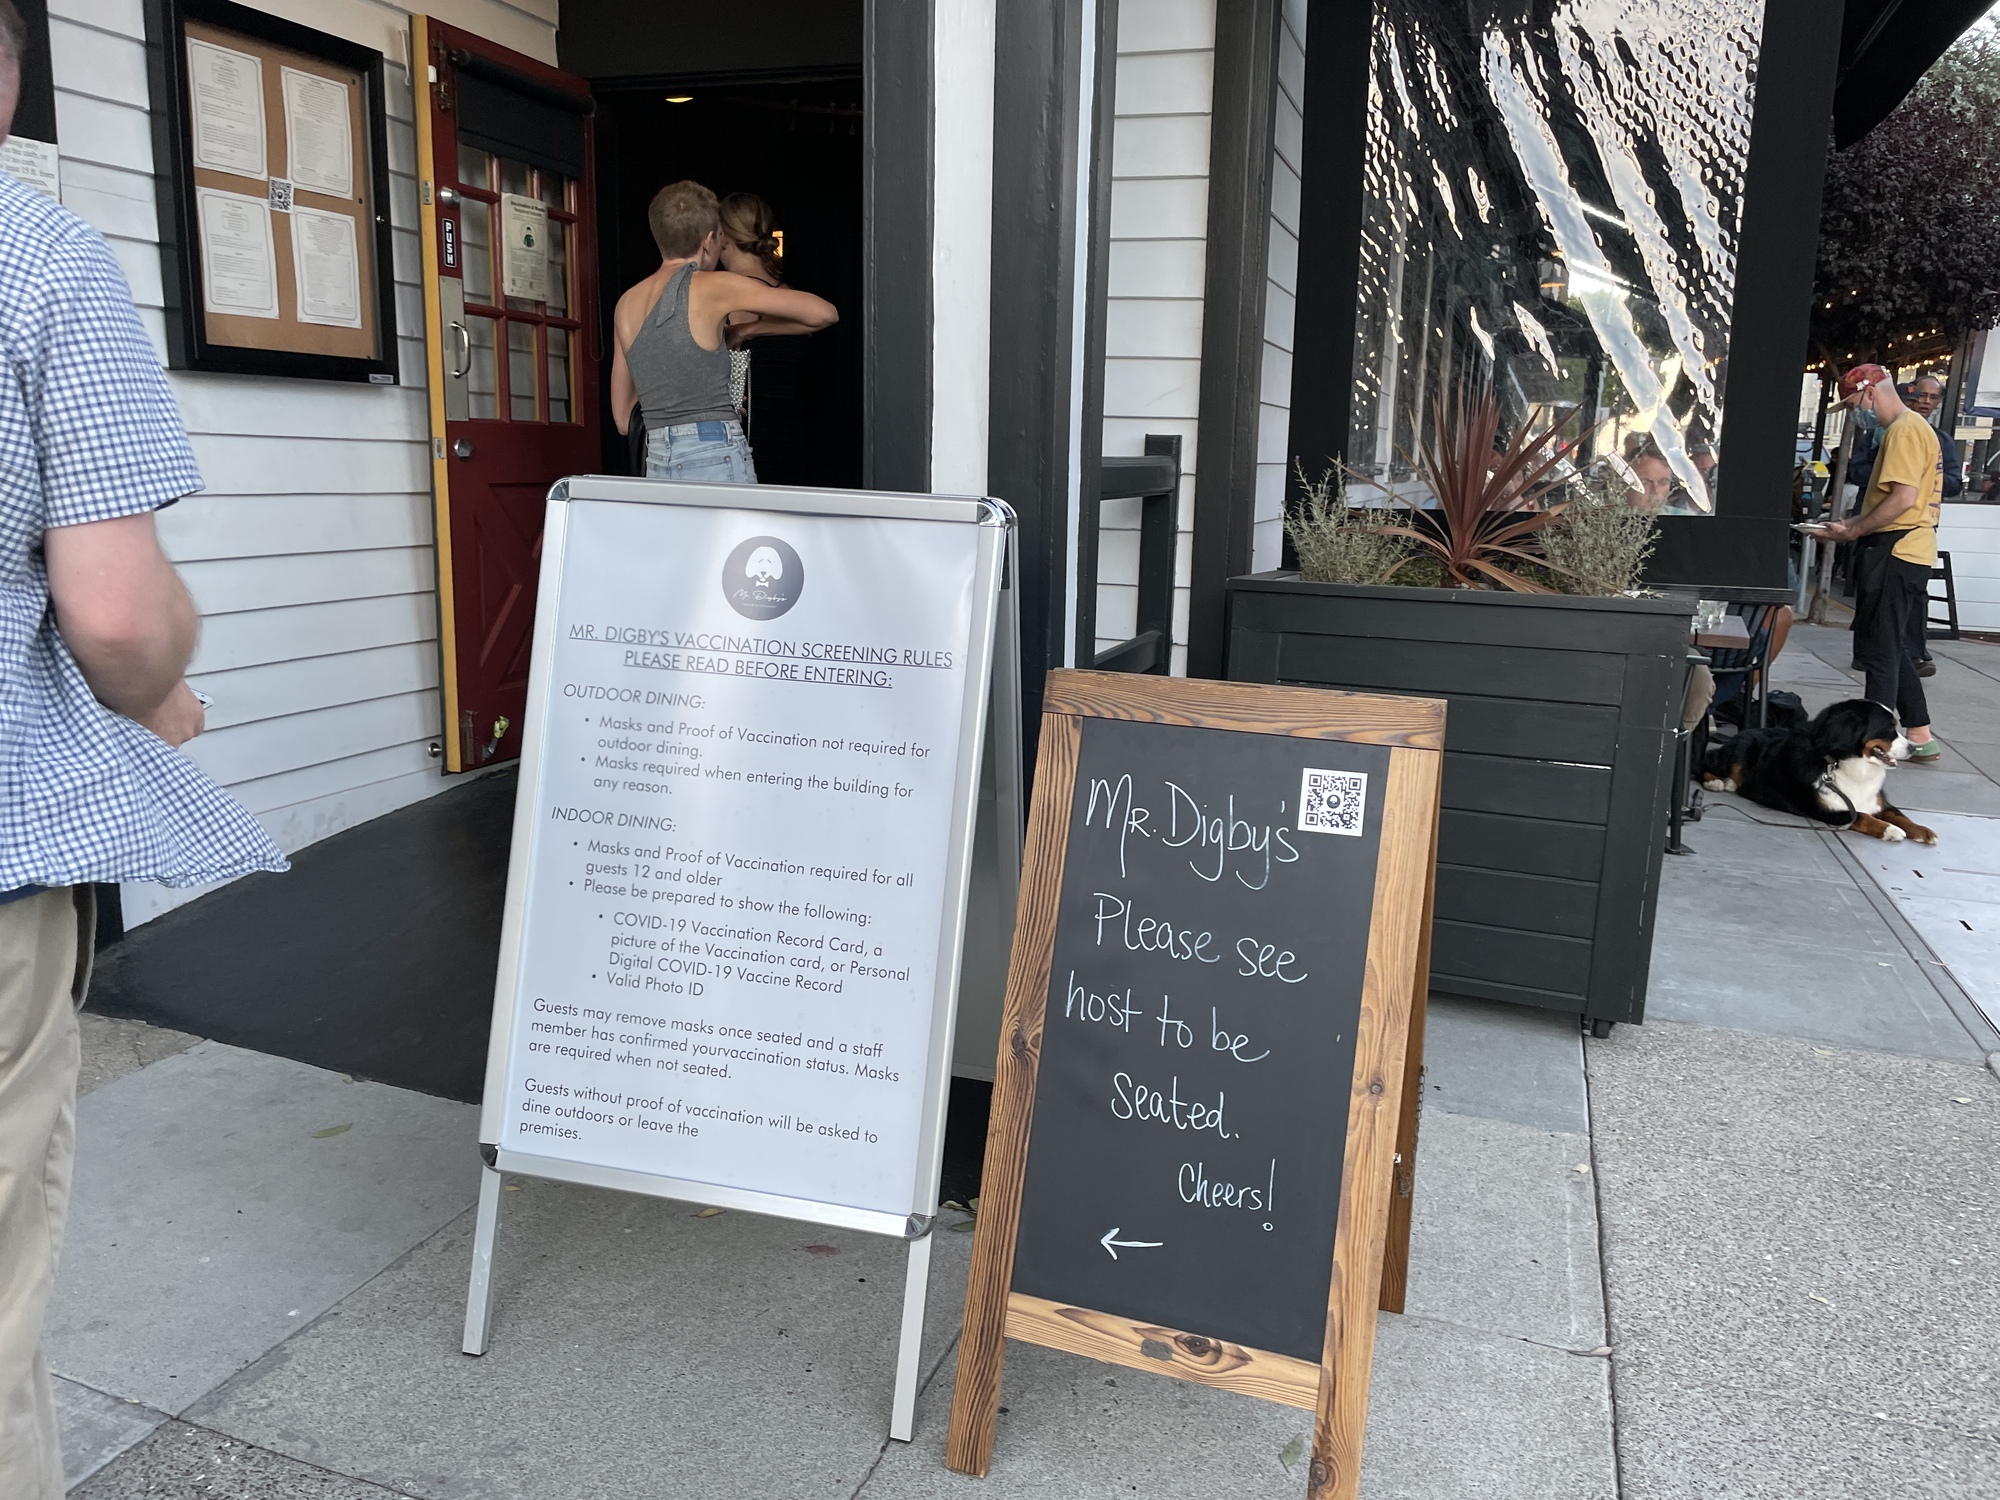 PUSH
Mr. Digby's
MR. DIGBY'S VACCINATION SCREENING RULES
PLEASE READ BEFORE ENTERING:
OUTDOOR DINING:
• Masks and Proof of Vaccination not required for
outdoor dining.
• Masks required when entering the building for
any reason.
INDOOR DINING:
• Masks and Proof of Vaccination required for all
guests 12 and older
• Please be prepared to show the following:
• COVID-19 Vaccination Record Card, a
picture of the Vaccination card, or Personal
Digital COVID-19 Vaccine Record
• Valid Photo ID
Guests may remove masks once seated and a staff
member has confirmed yourvaccination status. Masks
are required when not seated.
Guests without proof of vaccination will be asked to
dine outdoors or leave the
premises.
Mr. Digby's
Please see
host to be
seated.
Cheers!
←